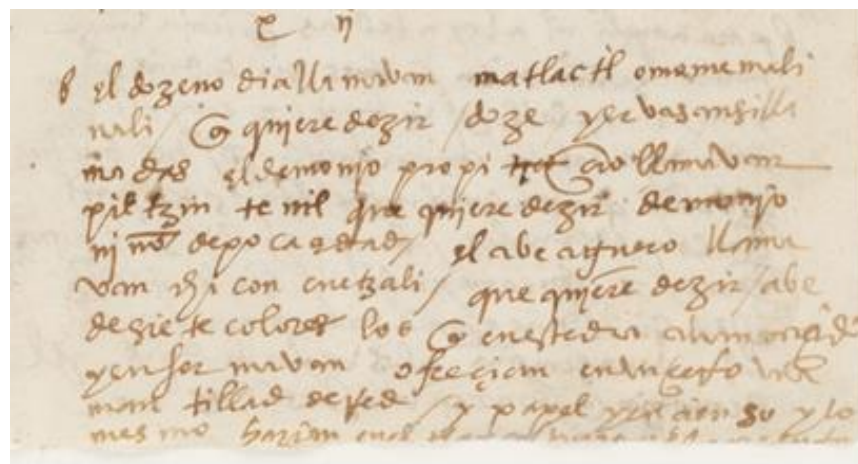 x ij
el dozeno dia llamavan matlactl omeme mali
nali / q quiere dezir / doze yervas ansi lla
madas el demonio propi cio llamavan
piltzin teutl que quiere dezir demonio
niño de poca edad / el abe aguero llama
van chicon cuetzali / que quiere dezir / abe
de siete colores los q en este dia
y enfermavan ofreçian
mantillas de red / y papel y ençienso y lo
mesmo harian